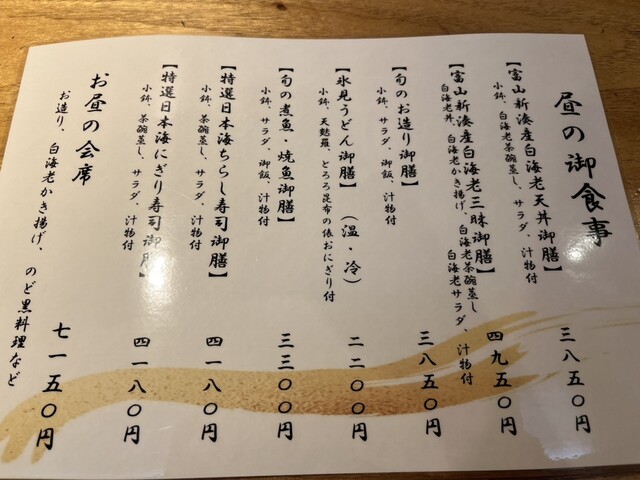 昼の御食事
【富山新湊産白海老天丼御膳】
小鉢、白海老茶碗蒸し、サラダ、汁物付
三八五〇円
【富山新湊産白海老三昧御膳】
白海老丼、白海老かき揚げ、白海老茶碗蒸し
白海老サラダ、汁物付
四九五〇円
【旬のお造り御膳】
小鉢、サラダ、御飯、汁物付
三八五〇円
【氷見うどん御膳】（温・冷）
小鉢、天麩羅、とろろ昆布の俵おにぎり付
二二〇〇円
【旬の煮魚・焼魚御膳】
小鉢、サラダ、御飯、汁物付
三三〇〇円
【特選日本海ちらし寿司御膳】
小鉢、茶碗蒸し、サラダ、汁物付
四一八〇円
【特選日本海にぎり寿司御膳】
小鉢、茶碗蒸し、サラダ、汁物付
四一八〇円
お昼の会席
お造り、白海老かき揚げ、のど黒料理など
七一五〇円